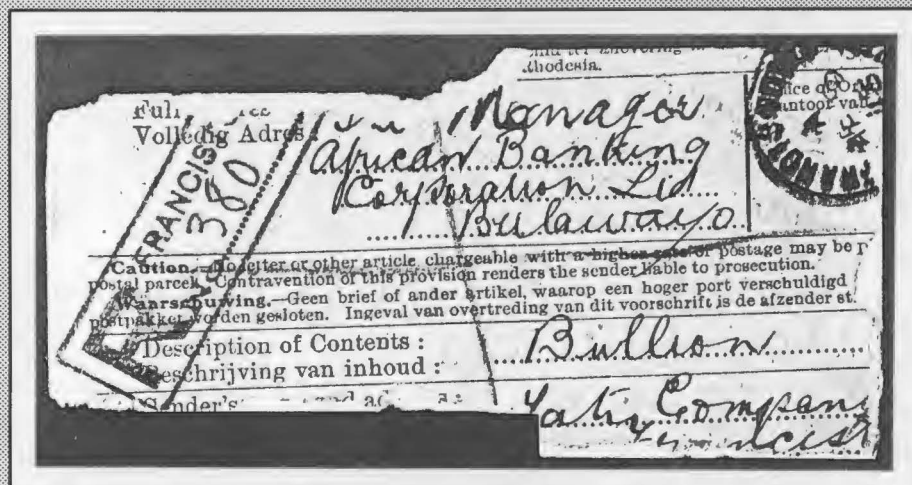 Rhodesia.
Full
Volledig Adres
Manager
African Banking
Corporation Ltd
Bulawayo
FRANCIS
380
Caution.—No letter or other article chargeable with a higher rate of postage may be
postal parcel. Contravention of this provision renders the sender liable to prosecution.
Waarschuwing.—Geen brief of ander artikel, waarop een hoger port verschuldigd
postpakket worden gesloten. Ingeval van overtreding van dit voorschrift is de afzender st
Description of Contents :
Beschrijving van inhoud :
Bullion
Sender's
Tati Company
Francist